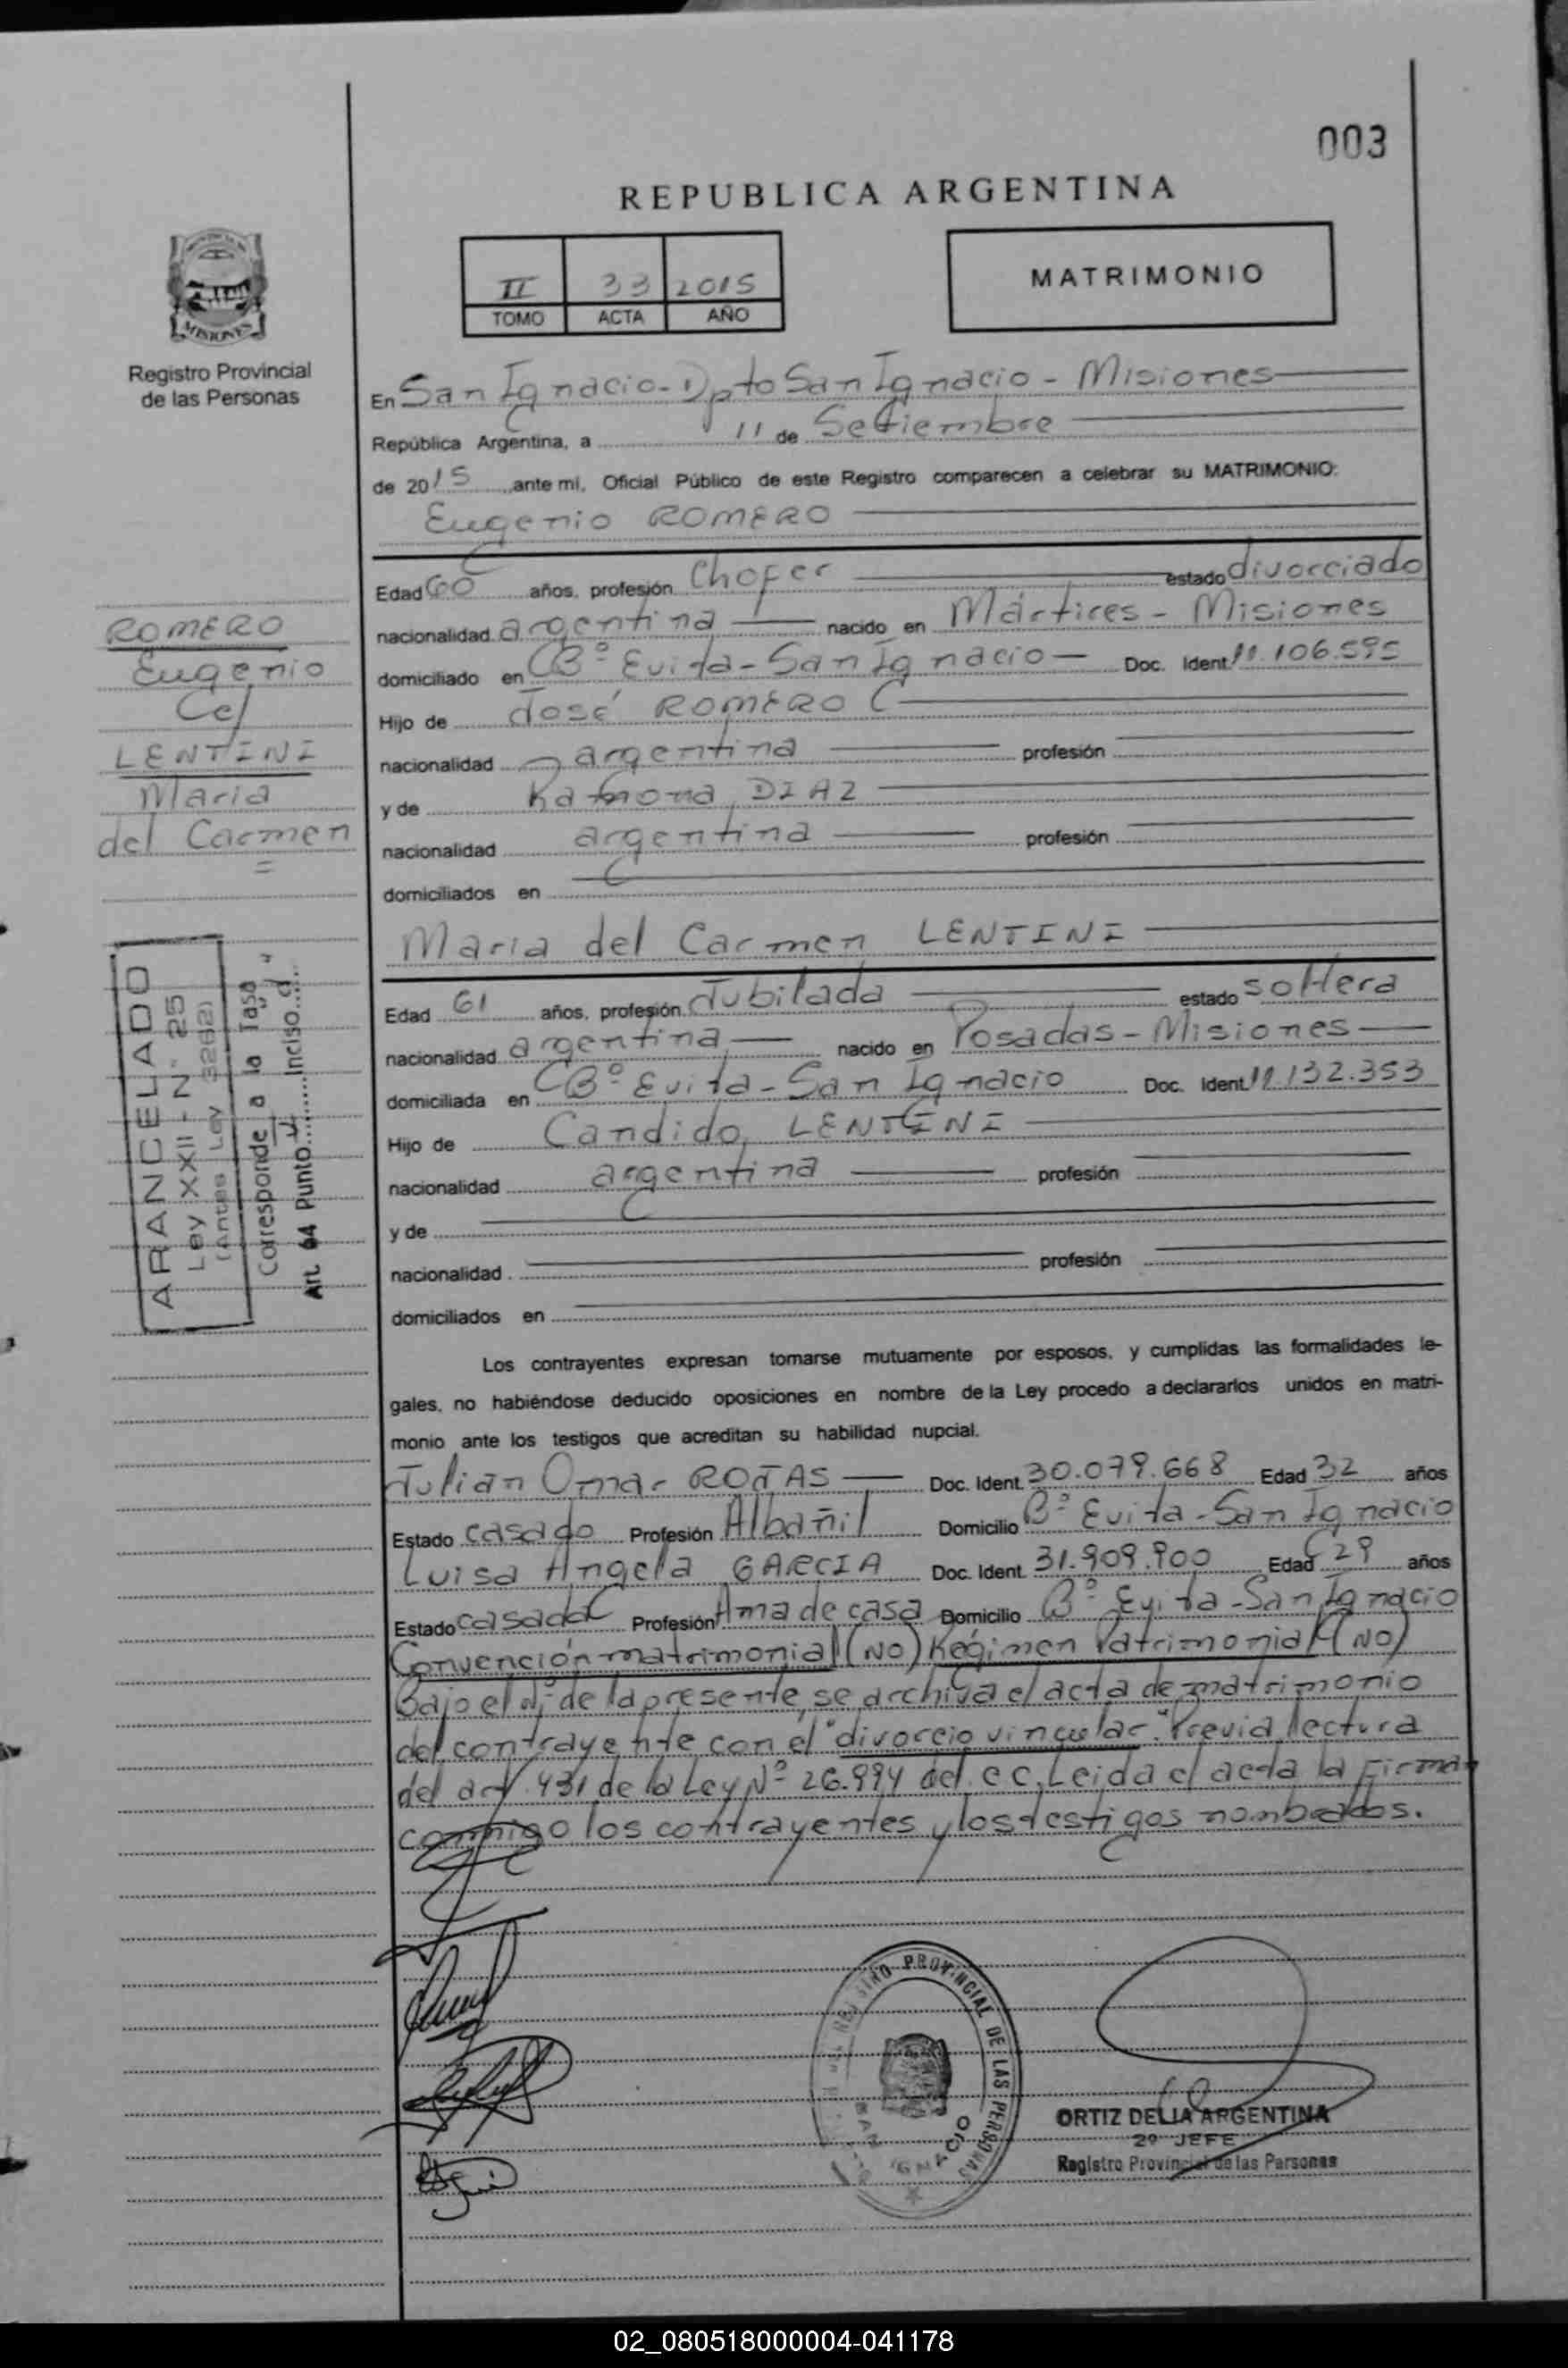 003
REPUBLICA ARGENTINA
II 33 2015
TOMO ACTA AÑO
MATRIMONIO
MISIONES
Registro Provincial
de las Personas
En San Ignacio - Dpto San Ignacio - Misiones
República Argentina, a 11 de Setiembre
de 2015 ante mí, Oficial Público de este Registro comparecen a celebrar su MATRIMONIO:
Eugenio ROMERO
Edad 60 años, profesión Chofer estado divorciado
nacionalidad argentina nacido en Mártires - Misiones
domiciliado en Bº Evita - San Ignacio - Doc. Ident. 11.106.595
Hijo de José ROMERO
nacionalidad argentina profesión
y de Ramona DIAZ
nacionalidad argentina profesión
domiciliados en
ROMERO
Eugenio
c/
LENTINI
Maria
del Carmen
=
Maria del Carmen LENTINI
Edad 61 años, profesión Jubilada estado soltera
nacionalidad argentina nacido en Posadas - Misiones
domiciliada en Bº Evita - San Ignacio Doc. Ident. 11.132.353
Hijo de Candido LENTINI
nacionalidad argentina profesión
y de
nacionalidad profesión
domiciliados en
ARANCELADO
Ley XXII - Nº 25
(Antes Ley 3262)
Corresponde a la Tasa
Art. 64 Punto Inciso d
Los contrayentes expresan tomarse mutuamente por esposos, y cumplidas las formalidades le-
gales, no habiéndose deducido oposiciones en nombre de la Ley procedo a declararlos unidos en matri-
monio ante los testigos que acreditan su habilidad nupcial.
Julian Omar ROJAS Doc. Ident. 30.079.668 Edad 32 años
Estado casado Profesión Albañil Domicilio Bº Evita - San Ignacio
Luisa Angela GARCIA Doc. Ident. 31.909.900 Edad 29 años
Estado casada Profesión Ama de casa Domicilio Bº Evita - San Ignacio
Convención matrimonial (NO) Régimen Patrimonial (NO)
Bajo el Nº de la presente, se archiva el acta de matrimonio
del contrayente con el "divorcio vincular". Previa lectura
del art. 431 de la Ley Nº 26.994 del C C, Leida el acta la firman
conmigo los contrayentes y los testigos nombrados.
REGISTRO PROVINCIAL DE LAS PERSONAS
SAN IGNACIO
ORTIZ DELIA ARGENTINA
2º JEFE
Registro Provincial de las Personas
02_080518000004-041178